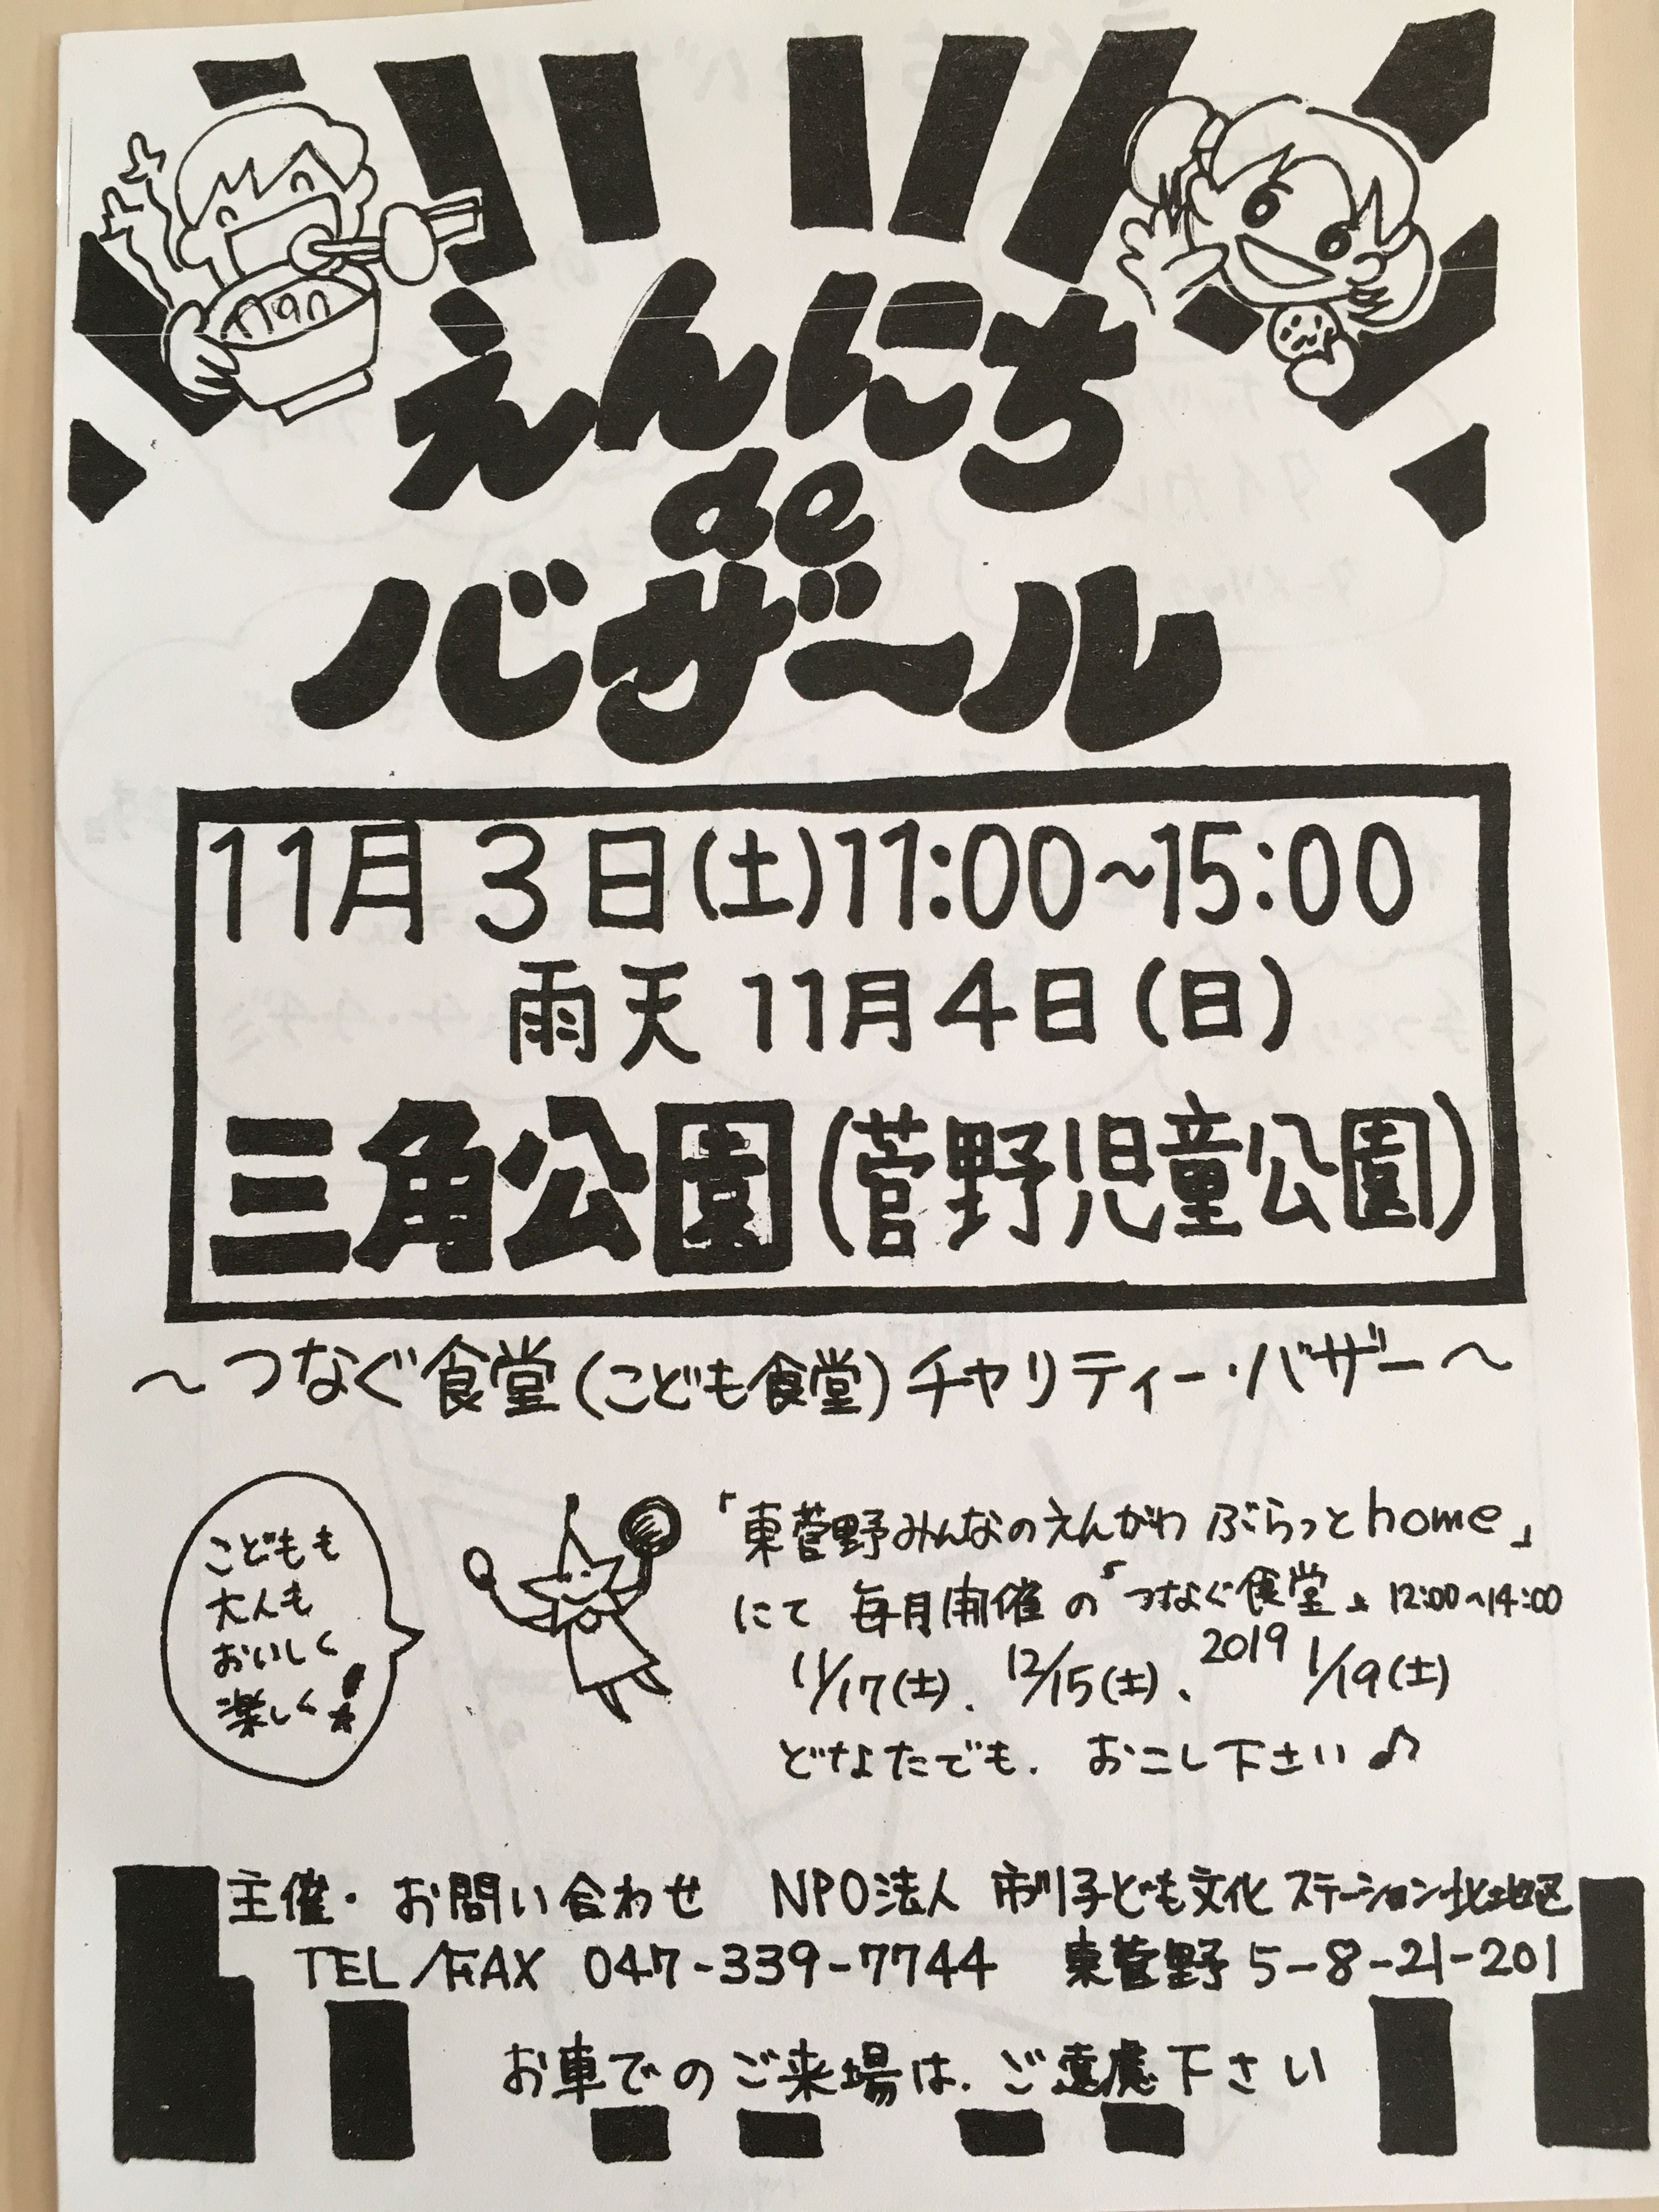 えんにち
de
バザール
11月3日(土)11:00~15:00
雨天 11月4日(日)
三角公園(菅野児童公園)
~つなぐ食堂(こども食堂)チャリティー・バザー~
こどもも
大人も
おいしく
楽しく!
「東菅野みんなのえんがわ ぷらっとhome」
にて 毎月開催の「つなぐ食堂」 12:00~14:00
11/17(土)、12/15(土)、2019 1/19(土)
どなたでも、おこし下さい♪
主催・お問い合わせ NPO法人 市川子ども文化ステーション北地区
TEL/FAX 047-339-7744 東菅野5-8-21-201
お車でのご来場は、ご遠慮下さい